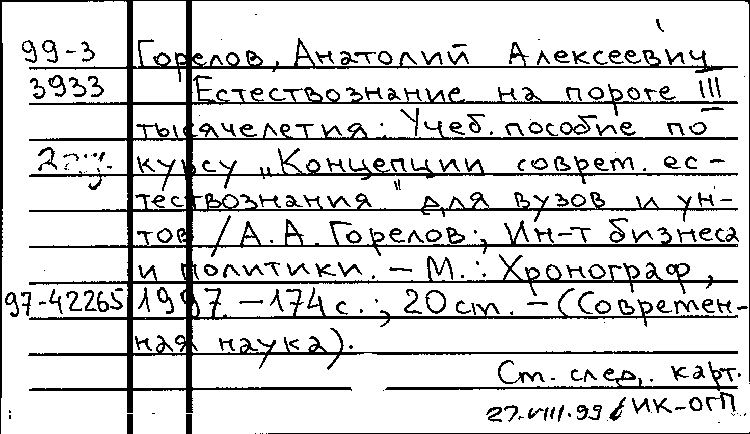 99-3 Горелов, Анатолий Алексеевич
3933 Естествознание на пороге III
тысячелетия: Учеб. пособие по
курсу „Концепции соврем. ес-
тествознания" для вузов и ун-
тов / А. А. Горелов; Ин-т бизнеса
и политики. – М.: Хронограф,
97-42265 1997. – 174 с.; 20 см. – (Современ-
ная наука).
См. след. карт.
27.VIII.99 ИК-ОГП